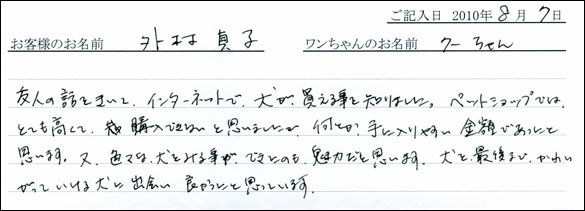 ご記入日 2010年 8月 7日
お客様のお名前 外村 真子 ワンちゃんのお名前 クーちゃん
友人の話をきいて、インターネットで、犬が、買える事を知りました。ペットショップでは、
とても高くて、購入できないと思いましたが、何とか、手に入りやすい金額であったと
思います。又、色々な、犬とみる事が、できたのも、魅力だと思います。犬を、最後まで、かわい
がっていける犬に出会い 良かったと思っています。